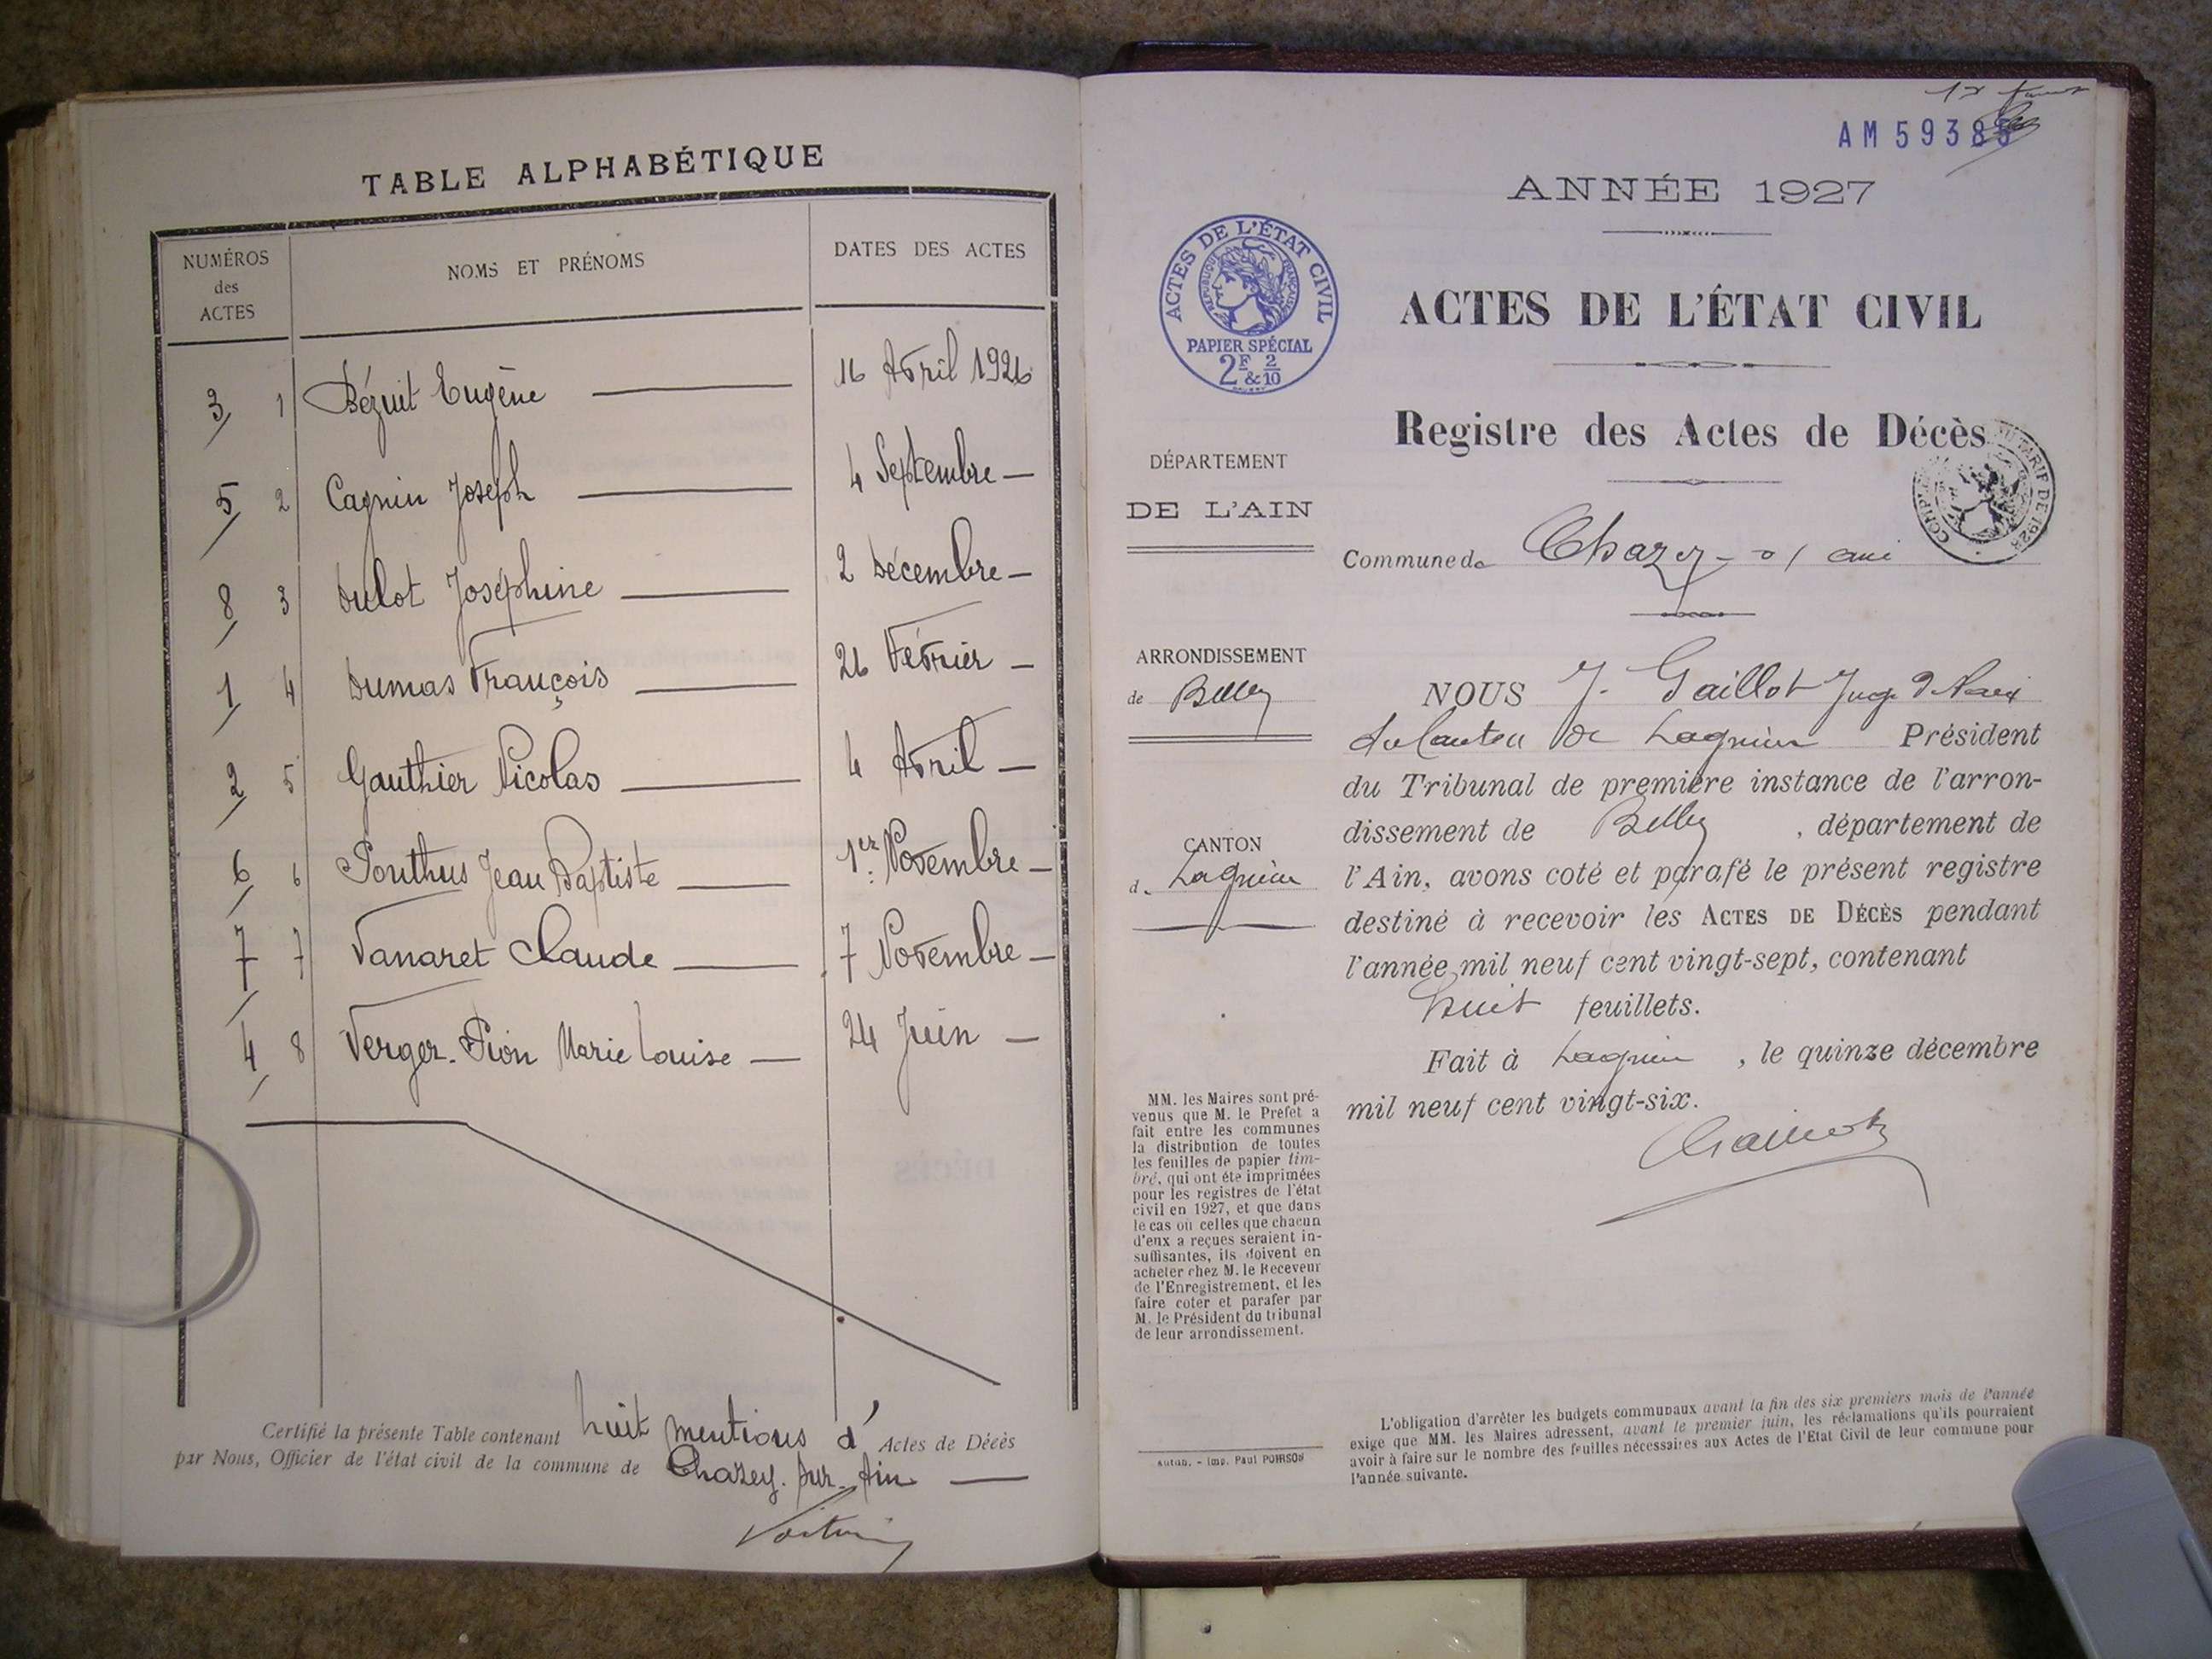 TABLE ALPHABÉTIQUE
NUMÉROS des ACTES
NOMS ET PRÉNOMS
DATES DES ACTES
3 1 Bézuit Eugène 16 Avril 1926
5 2 Cagnin Joseph 4 Septembre —
8 3 Dulot Joséphine 2 Décembre —
1 4 Dumas François 26 Février —
2 5 Gauthier Nicolas 4 Avril —
6 6 Ponthus Jean Baptiste 1er Novembre —
7 7 Vanaret Claude 7 Novembre —
4 8 Verger-Pion Marie Louise 24 Juin —
Certifié la présente Table contenant huit mentions d' Actes de Décès
par Nous, Officier de l'état civil de la commune de Chazey-sur-Ain
AM 59385
ANNÉE 1927
ACTES DE L'ÉTAT CIVIL
RÉPUBLIQUE FRANÇAISE
PAPIER SPÉCIAL
2F & 2/10
ACTES DE L'ÉTAT CIVIL
Registre des Actes de Décès
TARIF DE 1928
DÉPARTEMENT
DE L'AIN
Commune de Chazey-s/ ain
ARRONDISSEMENT
de Belley
CANTON
d. Lagnieu
NOUS J. Gaillot Juge d Paix
du Canton de Lagnieu Président
du Tribunal de première instance de l'arron-
dissement de Belley, département de
l'Ain, avons coté et parafé le présent registre
destiné à recevoir les ACTES DE DÉCÈS pendant
l'année mil neuf cent vingt-sept, contenant
huit feuillets.
Fait à Lagnieu, le quinze décembre
mil neuf cent vingt-six.
Gaillot
MM. les Maires sont pré-
venus que M. le Préfet a
fait entre les communes
la distribution de toutes
les feuilles de papier tim-
bré, qui ont été imprimées
pour les registres de l'état
civil en 1927, et que dans
le cas où celles que chacun
d'eux a reçues seraient in-
suffisantes, ils doivent en
acheter chez M. le Receveur
de l'Enregistrement, et les
faire coter et parafer par
M. le Président du tribunal
de leur arrondissement.
Autun. - Imp. Paul POIRSON
L'obligation d'arrêter les budgets communaux avant la fin des six premiers mois de l'année
exige que MM. les Maires adressent, avant le premier juin, les réclamations qu'ils pourraient
avoir à faire sur le nombre des feuilles nécessaires aux Actes de l'Etat Civil de leur commune pour
l'année suivante.